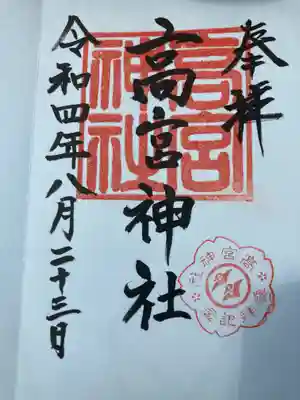 奉拝
高宮神社
令和四年八月二十三日
高宮
神社